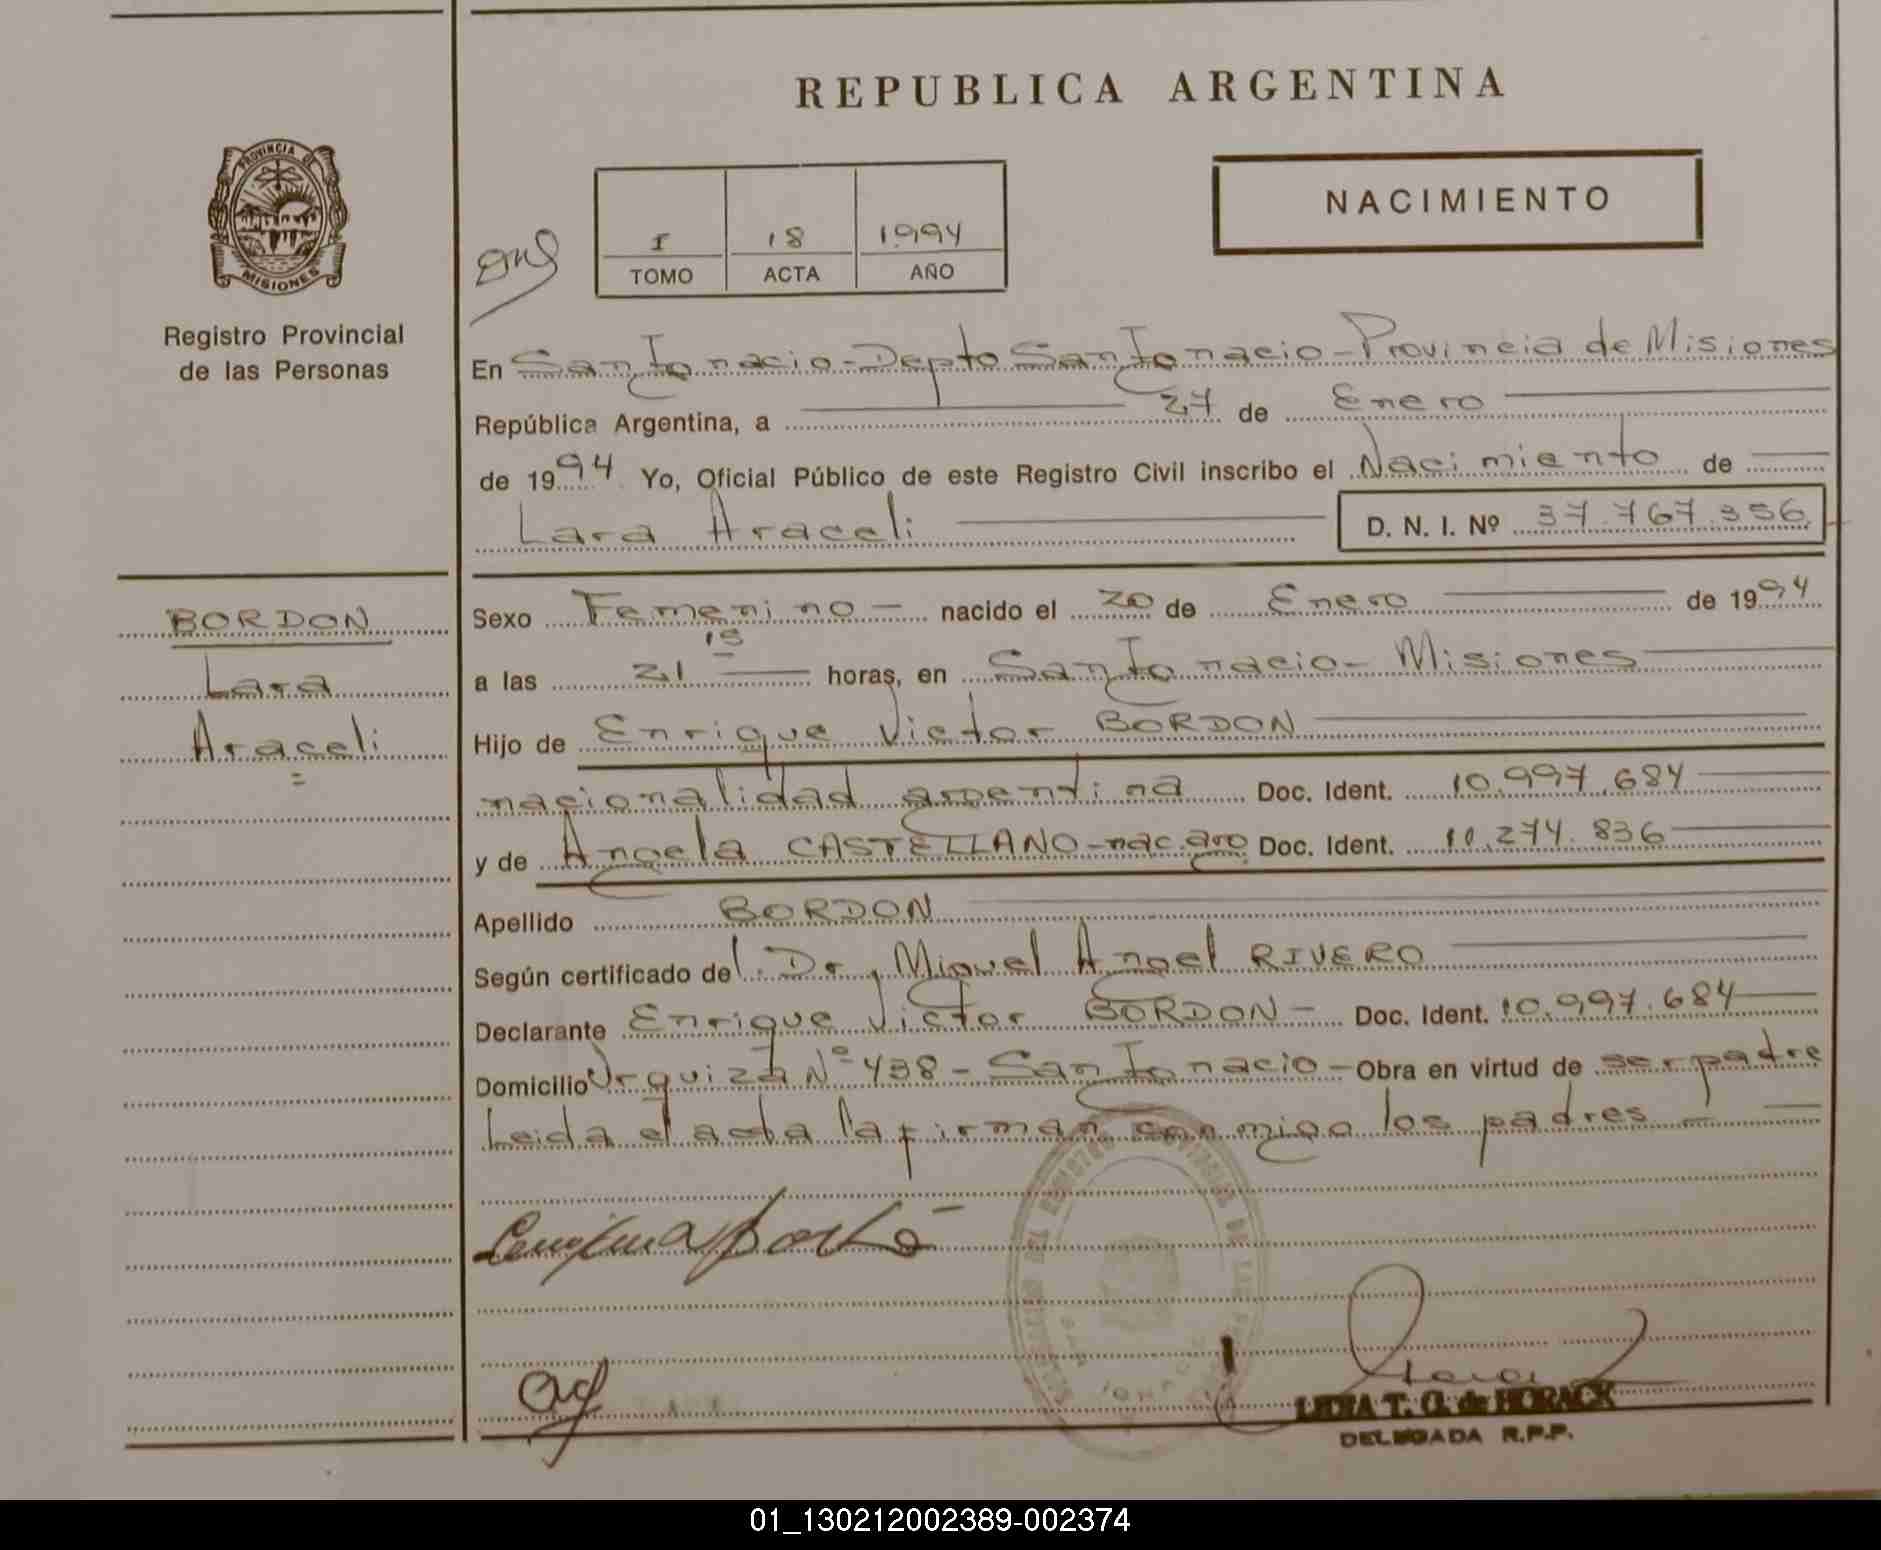 REPUBLICA ARGENTINA
PROVINCIA DE
MISIONES
Registro Provincial
de las Personas
NACIMIENTO
I 18 1994
TOMO ACTA AÑO
En San Ignacio - Depto San Ignacio - Provincia de Misiones
República Argentina, a 27 de Enero
de 1994 Yo, Oficial Público de este Registro Civil inscribo el Nacimiento de
Lara Araceli D. N. I. Nº 37.767.356
BORDON
Lara
Araceli
Sexo Femenino - nacido el 20 de Enero de 1994
a las 21 15 horas, en San Ignacio - Misiones
Hijo de Enrique Victor BORDON
nacionalidad argentina Doc. Ident. 10.997.684
y de Angela CASTELLANO - nac. arg Doc. Ident. 10.274.836
Apellido BORDON
Según certificado del. Dr. Miguel Angel RIVERO
Declarante Enrique Victor BORDON - Doc. Ident. 10.997.684
Domicilio Urquiza Nº 438 - San Ignacio - Obra en virtud de ser padre
Leida el acta la firman conmigo los padres -
LIDIA T. G. de HORACK
DELEGADA R.P.P.
01_130212002389-002374